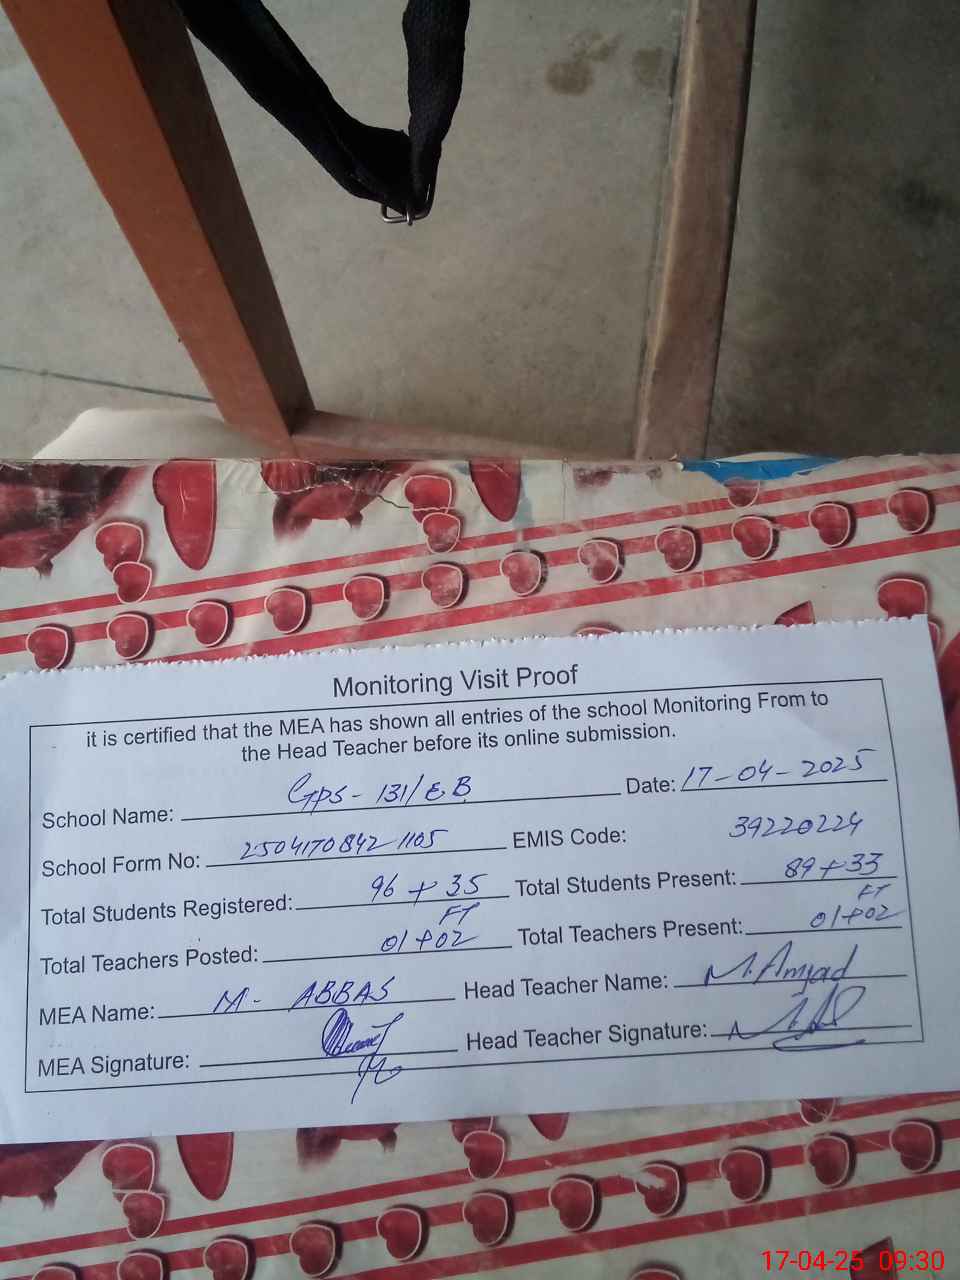 Monitoring Visit Proof
it is certified that the MEA has shown all entries of the school Monitoring From to
the Head Teacher before its online submission.
School Name: GPS - 131/E.B Date: 17-04-2025
School Form No: 2504170842 1105 EMIS Code: 39220224
Total Students Registered: 96 + 35 Total Students Present: 89+33
FT FT
Total Teachers Posted: 01+02 Total Teachers Present: 01+02
MEA Name: M- ABBAS Head Teacher Name: M. Amjad
MEA Signature: Head Teacher Signature:
17-04-25 09:30